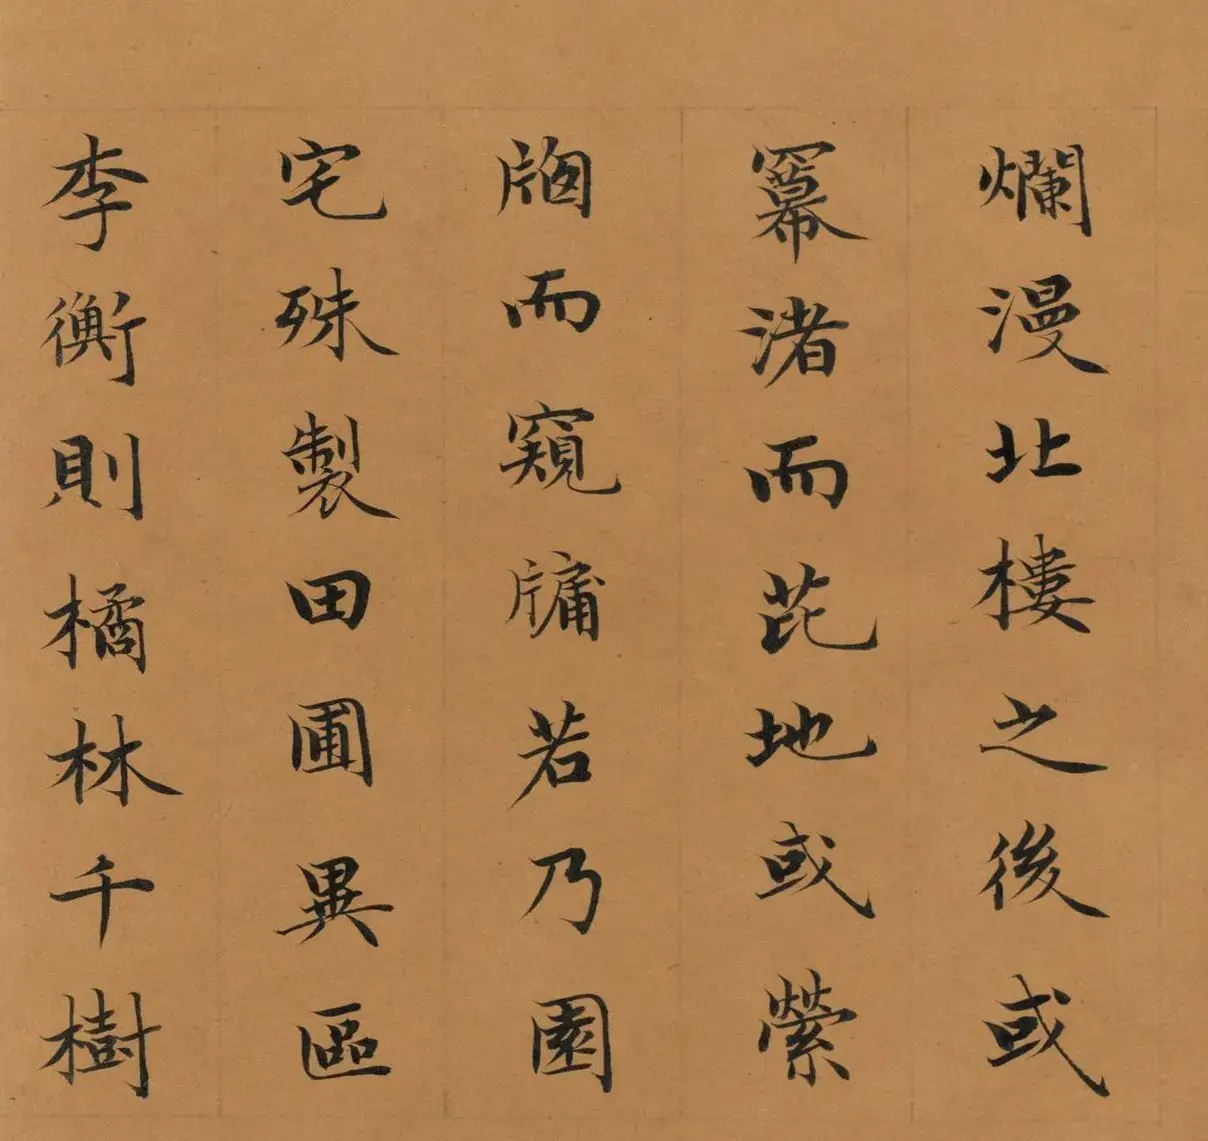 爛漫北樓之後或
羃渚而芘地或縈
牕而窺牖若乃園
宅殊製田圃異區
李衡則橘林千樹